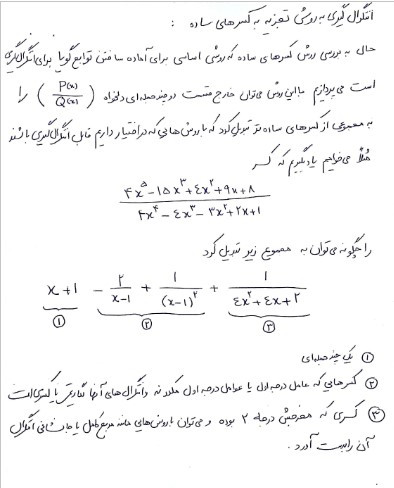 انتگرال گیری به روش تجزیه به کسرهای ساده :
حال به بررسی روش کسرهای ساده که روشی اساسی برای آماده ساختن توابع گویا برای انتگرال گیری
است می پردازیم با این روش می توان خارج قسمت دو چندجمله ای دلخواه (P(x)/Q(x)) را
به مجموعی از کسرهای ساده تر تبدیل کرد که با روش هایی که در اختیار داریم قابل انتگرال گیری باشند
مثلاً می خواهیم یاد بگیریم که کسر
۴x^۵ - ۱۵x^۳ + ٤x^۲ + ۹x + ۸
۴x^۴ - ٤x^۳ - ۳x^۲ + ۲x + ۱
را چگونه می توان به مجموع زیر تبدیل کرد
x + ۱ - ۲/(x-۱) + ۱/(x-۱)^۲ + ۱/(٤x^۲ + ٤x + ۲)
① ② ③
① یک چندجمله ای
② کسرهایی که عامل درجه اول یا عوامل درجه اول و انتگرال های آنها لگاریتم یا کسری است
③ کسری که مخرجش درجه ۲ بوده و می توان با روش هایی مانند مربع کامل یا جانشانی انتگرال
آن را بدست آورد .